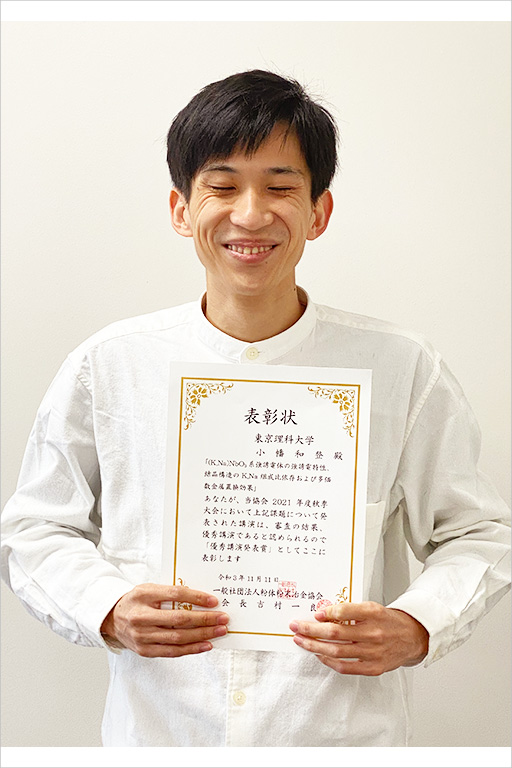 表彰状
東京理科大学
小幡和登 殿
「(K,Na)NbO₃系強誘電体の強誘電特性、
結晶構造のK,Na組成比依存および多価
数金属置換効果」
あなたが、当協会2021年度秋季
大会において上記課題について発
表された講演は、審査の結果、
優秀講演であると認められるので
「優秀講演発表賞」としてここに
表彰します
令和3年11月11日
一般社団法人粉体粉末冶金協会
会長吉村一良